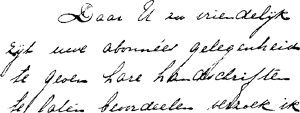 Daar U zoo vriendelijk
zijt uwe abonnées gelegenheid
te geven hare handschriften
te laten beoordeelen verzoek ik